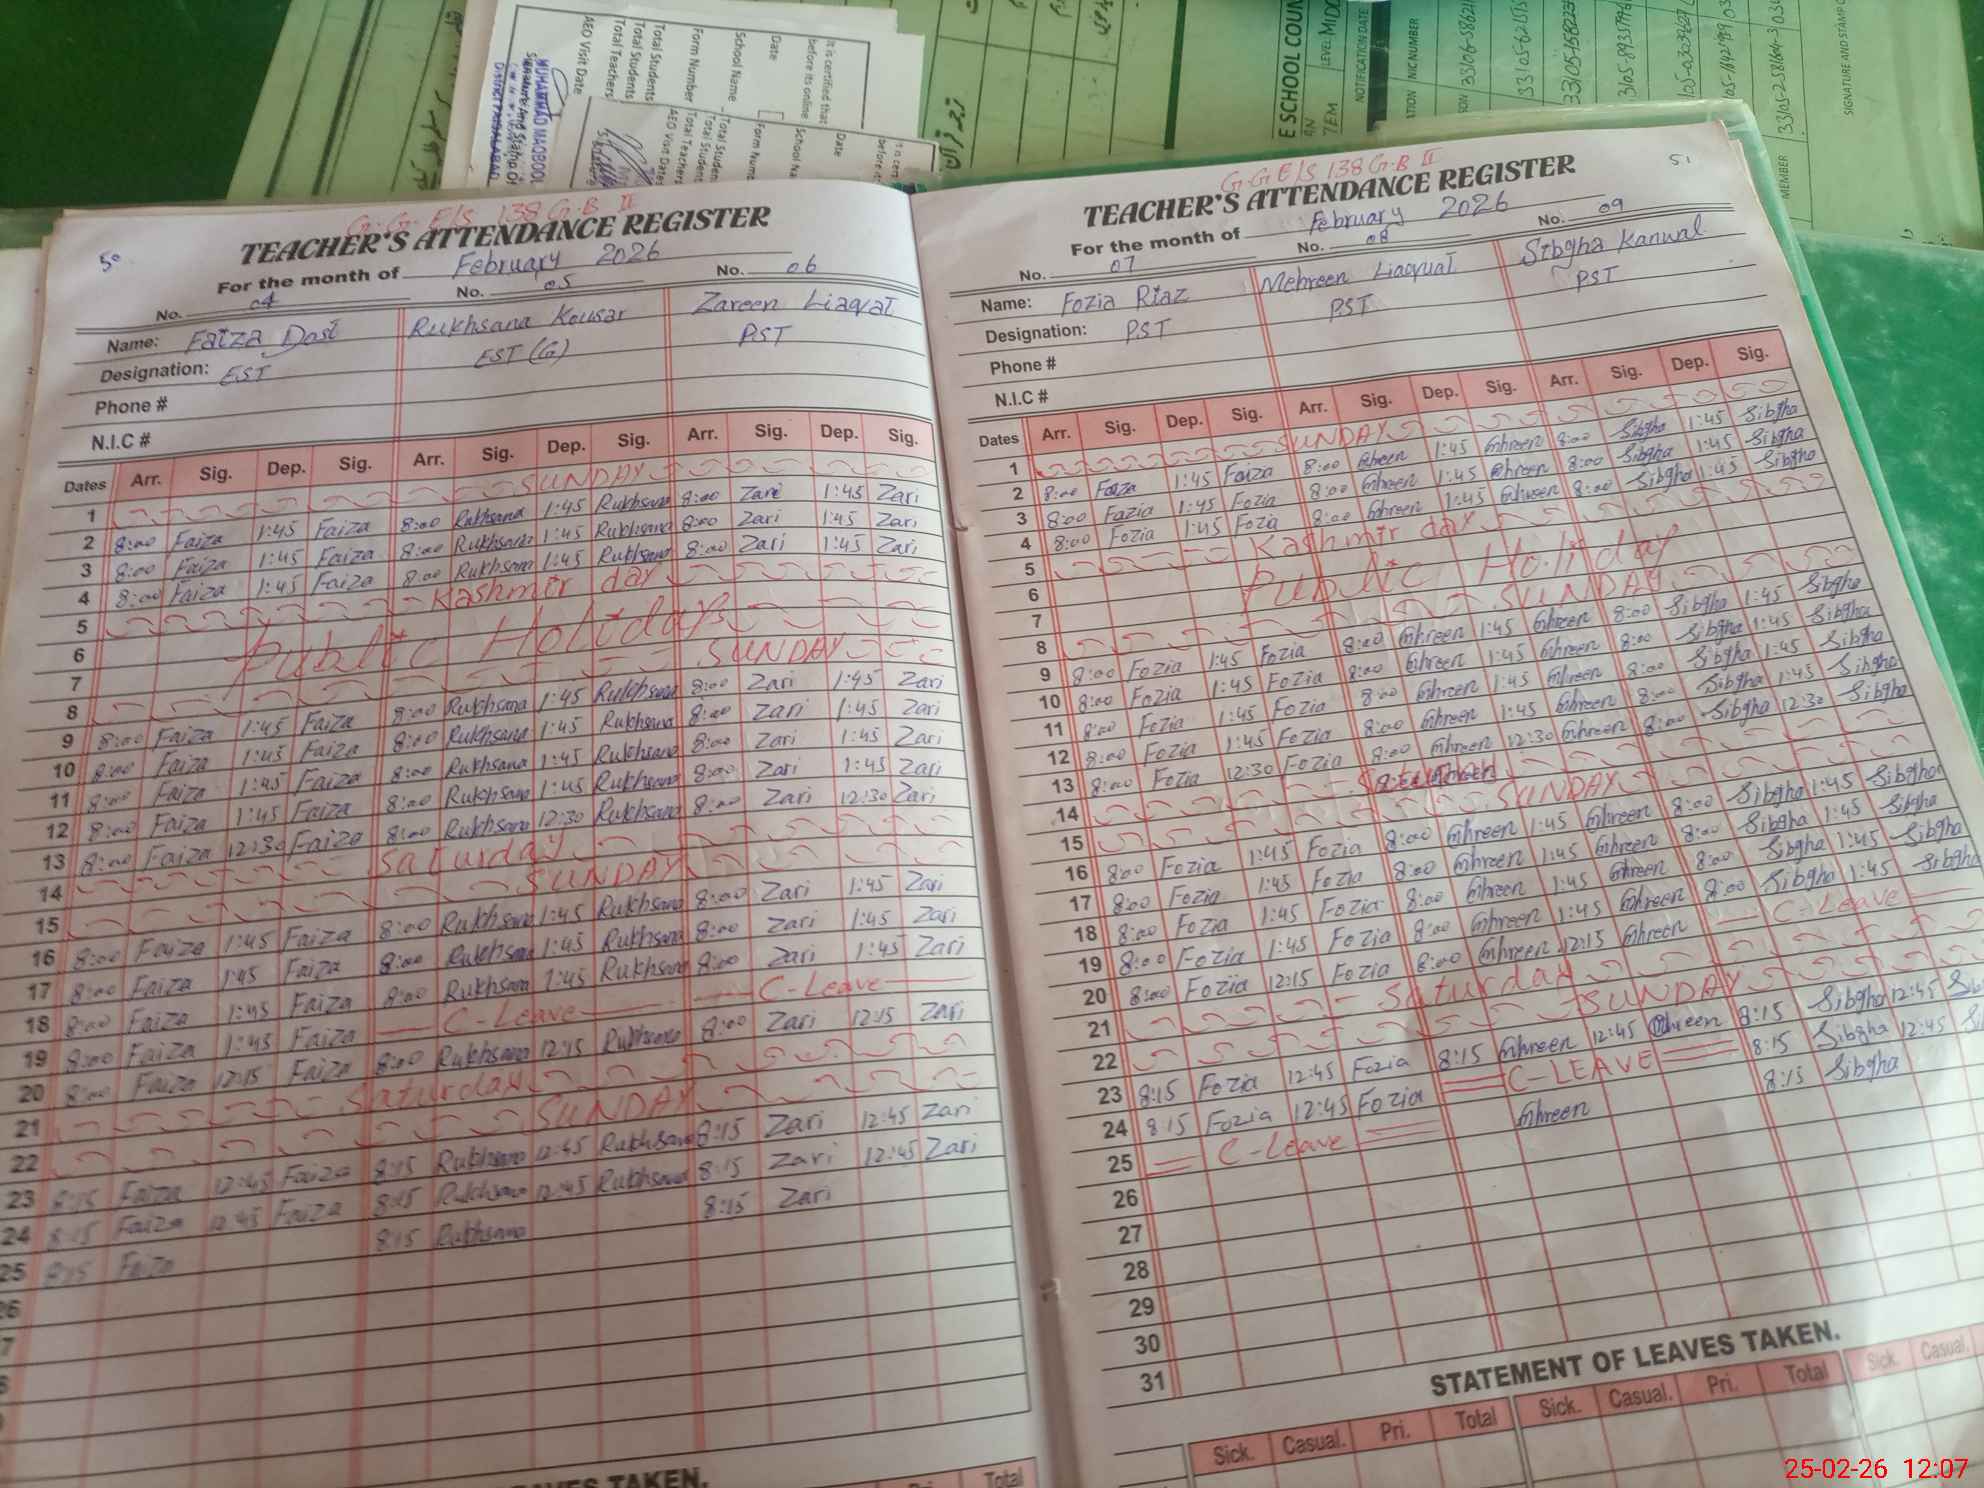 G.G.E/S 138 G.B II
50
TEACHER'S ATTENDANCE REGISTER
For the month of February 2026
No. 04 No. 05 No. 06
Name: Faiza Dost Rukhsana Kousar Zareen Liaqat
Designation: EST EST (G) PST
Phone #
N.I.C #
Dates Arr. Sig. Dep. Sig. Arr. Sig. Dep. Sig. Arr. Sig. Dep. Sig.
1 SUNDAY
2 8:00 Faiza 1:45 Faiza 8:00 Rukhsana 1:45 Rukhsana 8:00 Zari 1:45 Zari
3 8:00 Faiza 1:45 Faiza 8:00 Rukhsana 1:45 Rukhsana 8:00 Zari 1:45 Zari
4 8:00 Faiza 1:45 Faiza 8:00 Rukhsana 1:45 Rukhsana 8:00 Zari 1:45 Zari
5 Kashmir day
6 Public Holiday
7
8 SUNDAY
9 8:00 Faiza 1:45 Faiza 8:00 Rukhsana 1:45 Rukhsana 8:00 Zari 1:45 Zari
10 8:00 Faiza 1:45 Faiza 8:00 Rukhsana 1:45 Rukhsana 8:00 Zari 1:45 Zari
11 8:00 Faiza 1:45 Faiza 8:00 Rukhsana 1:45 Rukhsana 8:00 Zari 1:45 Zari
12 8:00 Faiza 1:45 Faiza 8:00 Rukhsana 1:45 Rukhsana 8:00 Zari 1:45 Zari
13 8:00 Faiza 12:30 Faiza 8:00 Rukhsana 12:30 Rukhsana 8:00 Zari 12:30 Zari
14 Saturday
15 SUNDAY
16 8:00 Faiza 1:45 Faiza 8:00 Rukhsana 1:45 Rukhsana 8:00 Zari 1:45 Zari
17 8:00 Faiza 1:45 Faiza 8:00 Rukhsana 1:45 Rukhsana 8:00 Zari 1:45 Zari
18 8:00 Faiza 1:45 Faiza 8:00 Rukhsana 1:45 Rukhsana 8:00 Zari 1:45 Zari
19 8:00 Faiza 1:45 Faiza C-Leave C-Leave
20 8:00 Faiza 12:15 Faiza 8:00 Rukhsana 12:15 Rukhsana 8:00 Zari 12:15 Zari
21 Saturday
22 SUNDAY
23 8:15 Faiza 12:45 Faiza 8:15 Rukhsana 12:45 Rukhsana 8:15 Zari 12:45 Zari
24 8:15 Faiza 12:45 Faiza 8:15 Rukhsana 12:45 Rukhsana 8:15 Zari 12:45 Zari
25 8:15 Faiza 8:15 Rukhsana 8:15 Zari
LEAVES TAKEN.
Total
G.G.E/S 138 G.B II
51
TEACHER'S ATTENDANCE REGISTER
For the month of February 2026
No. 07 No. 08 No. 09
Name: Fozia Riaz Mehreen Liaquat Sibgha Kanwal
Designation: PST PST PST
Phone #
N.I.C #
Dates Arr. Sig. Dep. Sig. Arr. Sig. Dep. Sig. Arr. Sig. Dep. Sig.
1 SUNDAY
2 8:00 Fozia 1:45 Fozia 8:00 Ghreen 1:45 Ghreen 8:00 Sibgha 1:45 Sibgha
3 8:00 Fozia 1:45 Fozia 8:00 Ghreen 1:45 Ghreen 8:00 Sibgha 1:45 Sibgha
4 8:00 Fozia 1:45 Fozia 8:00 Ghreen 1:45 Ghreen 8:00 Sibgha 1:45 Sibgha
5 Kashmir day
6 Public Holiday
7
8 SUNDAY
9 8:00 Fozia 1:45 Fozia 8:00 Ghreen 1:45 Ghreen 8:00 Sibgha 1:45 Sibgha
10 8:00 Fozia 1:45 Fozia 8:00 Ghreen 1:45 Ghreen 8:00 Sibgha 1:45 Sibgha
11 8:00 Fozia 1:45 Fozia 8:00 Ghreen 1:45 Ghreen 8:00 Sibgha 1:45 Sibgha
12 8:00 Fozia 1:45 Fozia 8:00 Ghreen 1:45 Ghreen 8:00 Sibgha 1:45 Sibgha
13 8:00 Fozia 12:30 Fozia 8:00 Ghreen 12:30 Ghreen 8:00 Sibgha 12:30 Sibgha
14
15 SUNDAY
16 8:00 Fozia 1:45 Fozia 8:00 Ghreen 1:45 Ghreen 8:00 Sibgha 1:45 Sibgha
17 8:00 Fozia 1:45 Fozia 8:00 Ghreen 1:45 Ghreen 8:00 Sibgha 1:45 Sibgha
18 8:00 Fozia 1:45 Fozia 8:00 Ghreen 1:45 Ghreen 8:00 Sibgha 1:45 Sibgha
19 8:00 Fozia 1:45 Fozia 8:00 Ghreen 1:45 Ghreen 8:00 Sibgha 1:45 Sibgha
20 8:00 Fozia 12:15 Fozia 8:00 Ghreen 12:15 Ghreen C-Leave
21 Saturday
22 SUNDAY
23 8:15 Fozia 12:45 Fozia 8:15 Ghreen 12:45 Ghreen 8:15 Sibgha 12:45
24 8:15 Fozia 12:45 Fozia C-LEAVE 8:15 Sibgha 12:45
25 C-Leave Ghreen 8:15 Sibgha
26
27
28
29
30
31
STATEMENT OF LEAVES TAKEN.
Sick. Casual. Pri. Total Sick. Casual. Pri. Total Sick. Casual.
It is certified that
before its online
Date
School Name
Form Number
Total Students
Total Students
Total Teachers
AEO Visit Date
MUHAMMAD MAQBOOL
E SCHOOL COUN
LEVEL MIDD
7EM
NOTIFICATION DATE
NIC NUMBER
MEMBER
SIGNATURE AND STAMP
25-02-26 12:07